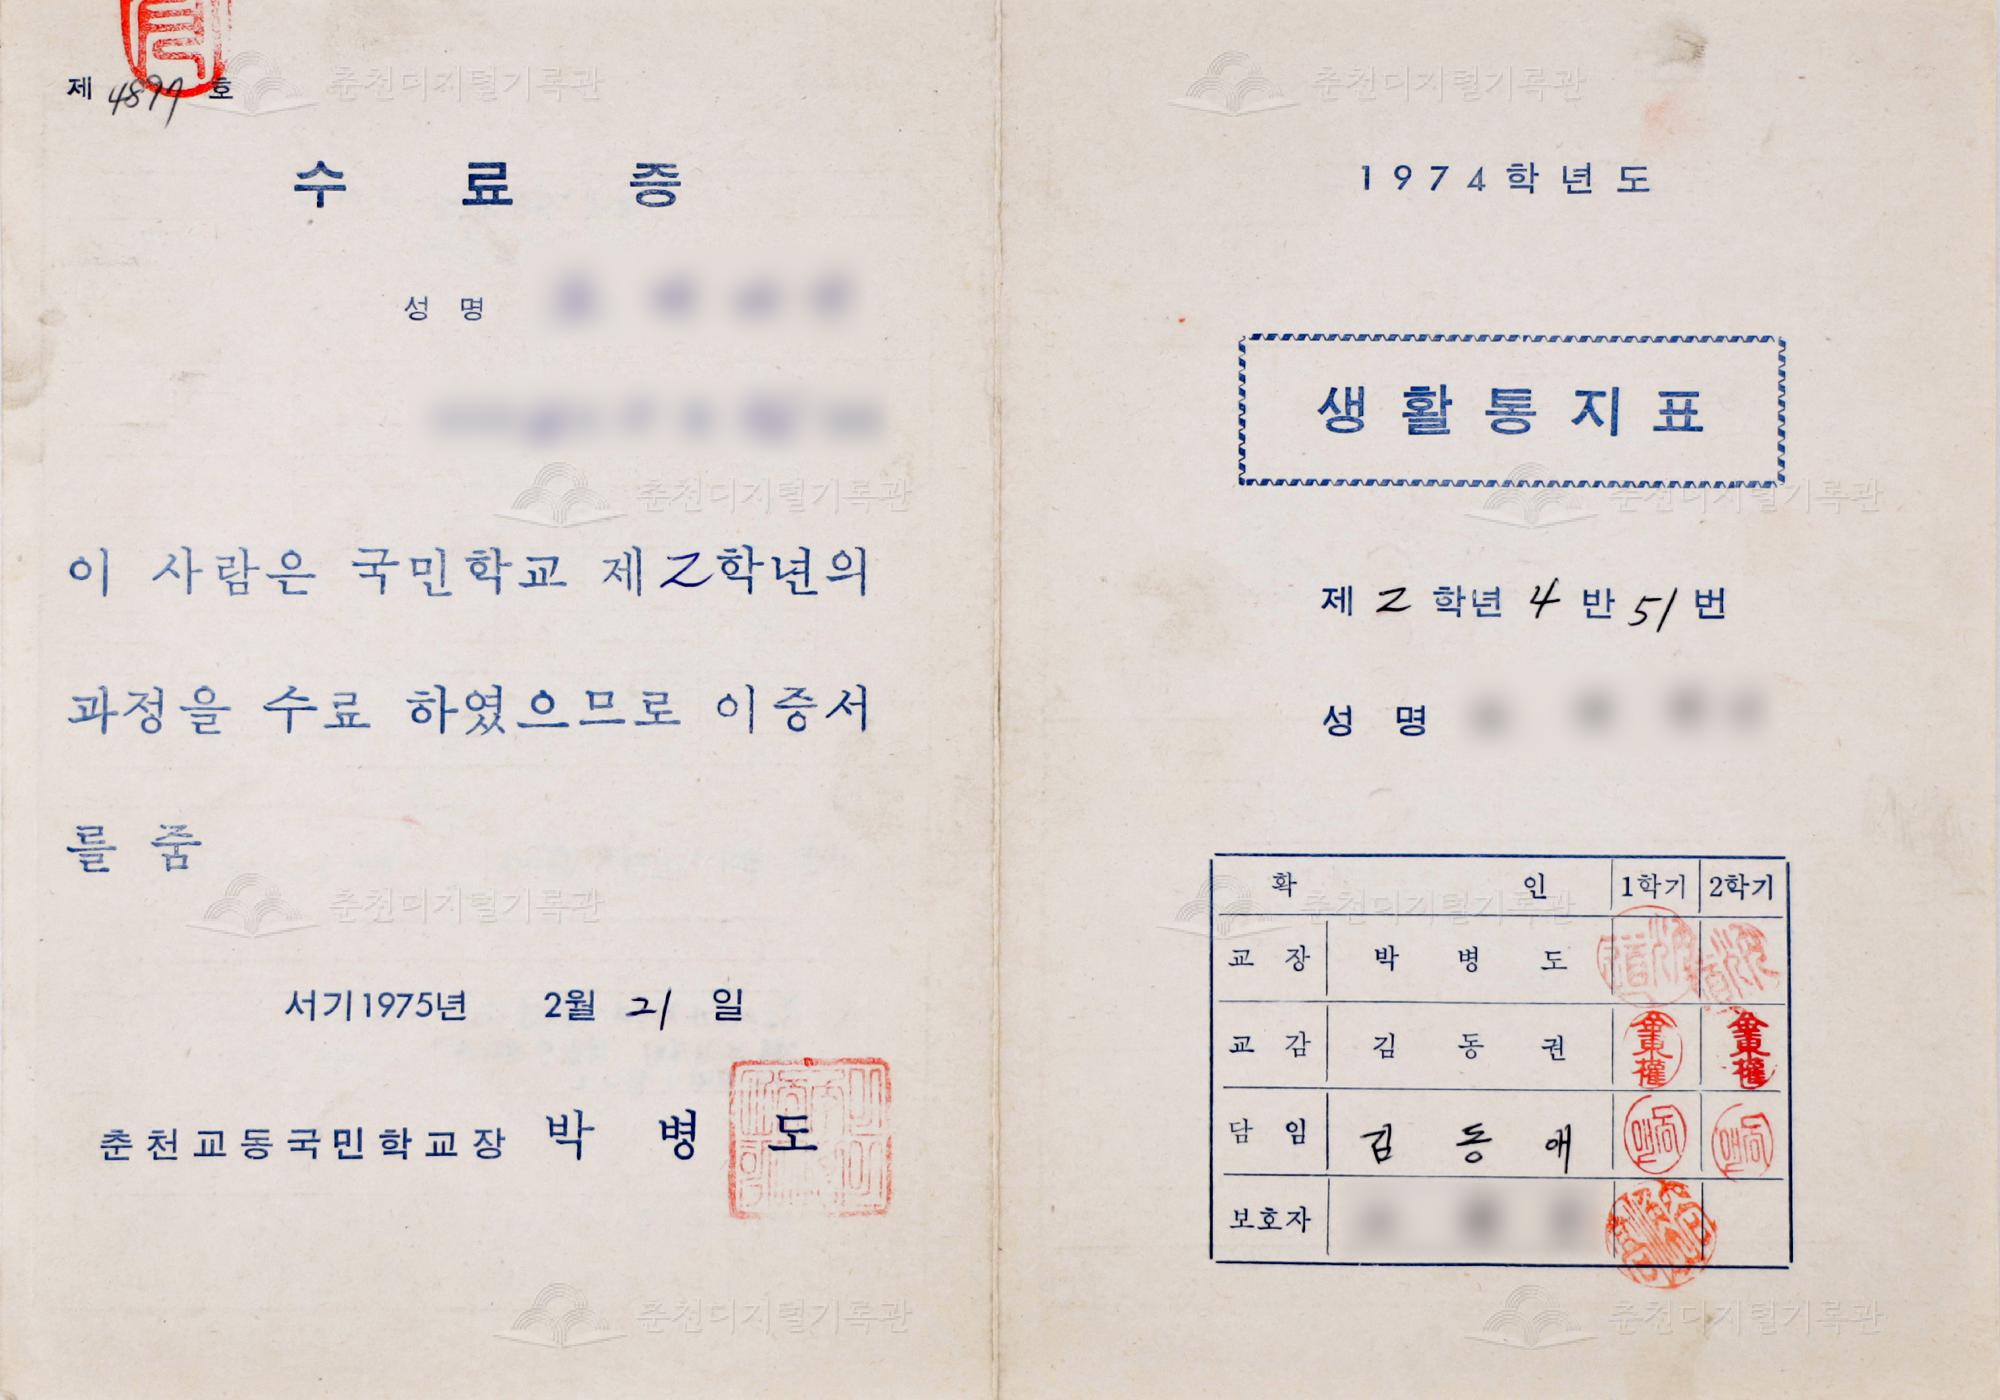 제 4897 호
수 료 증
성 명
이 사람은 국민학교 제2학년의
과정을 수료 하였으므로 이증서
를 줌
서기1975년 2월 21 일
춘천교동국민학교장 박 병 도
1974학년도
생활통지표
제 2 학년 4 반 51 번
성 명
확 인 1학기 2학기
교 장 박 병 도
교 감 김 동 권 金東權 金東權
담 임 김 동 애
보호자
춘천디지털기록관
춘천디지털기록관
춘천디지털기록관
춘천디지털기록관
춘천디지털기록관
춘천디지털기록관
춘천디지털기록관
춘천디지털기록관